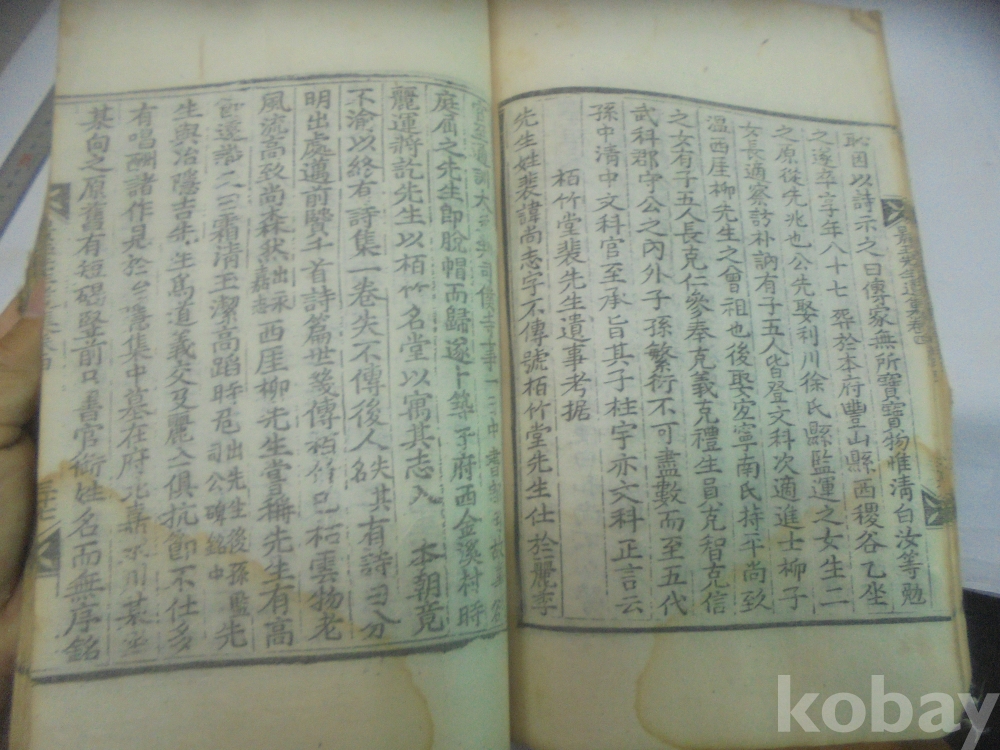 恥因以詩示之曰傳家無所寶寶物惟淸白汝等勉
之遂卒享年八十七葬於本府豐山縣西稷谷乙坐
之原從先兆也公先娶利川徐氏縣監運之女生二
女長適察訪朴訥有子五人皆登文科次適進士柳子
溫西厓柳先生之曾祖也後娶宜寧南氏持平尚致
之女有子五人長克仁參奉克義克禮生員克智克信
武科郡守公之內外子孫繁衍不可盡數而至五代
孫中淸中文科官至承旨其子柱宇亦文科正言云
栢竹堂裴先生遺事考据
先生姓裴諱尚志字不傳號栢竹堂先生仕於麗季
庭屈之先生即脫帽而歸遂卜築于府西金溪村時
麗運將訖先生以栢竹名堂以寓其志入 本朝竟
不渝以終有詩集一卷失不傳後人失其名有詩曰分
明出處邁前賢千首詩篇世幾傳栢竹已枯雲物老
風流高致尚森然出永嘉志西厓柳先生嘗稱先生有高
節邃學 霜淸玉潔高蹈時危出先生後孫監司公碑銘中先
生與冶隱吉先生爲道義交及麗亡俱抗節不仕多
有唱酬諸作見於 集中墓在府北 某坐
某向之原舊有短碣竪前只書官銜姓名而無序銘
kobay